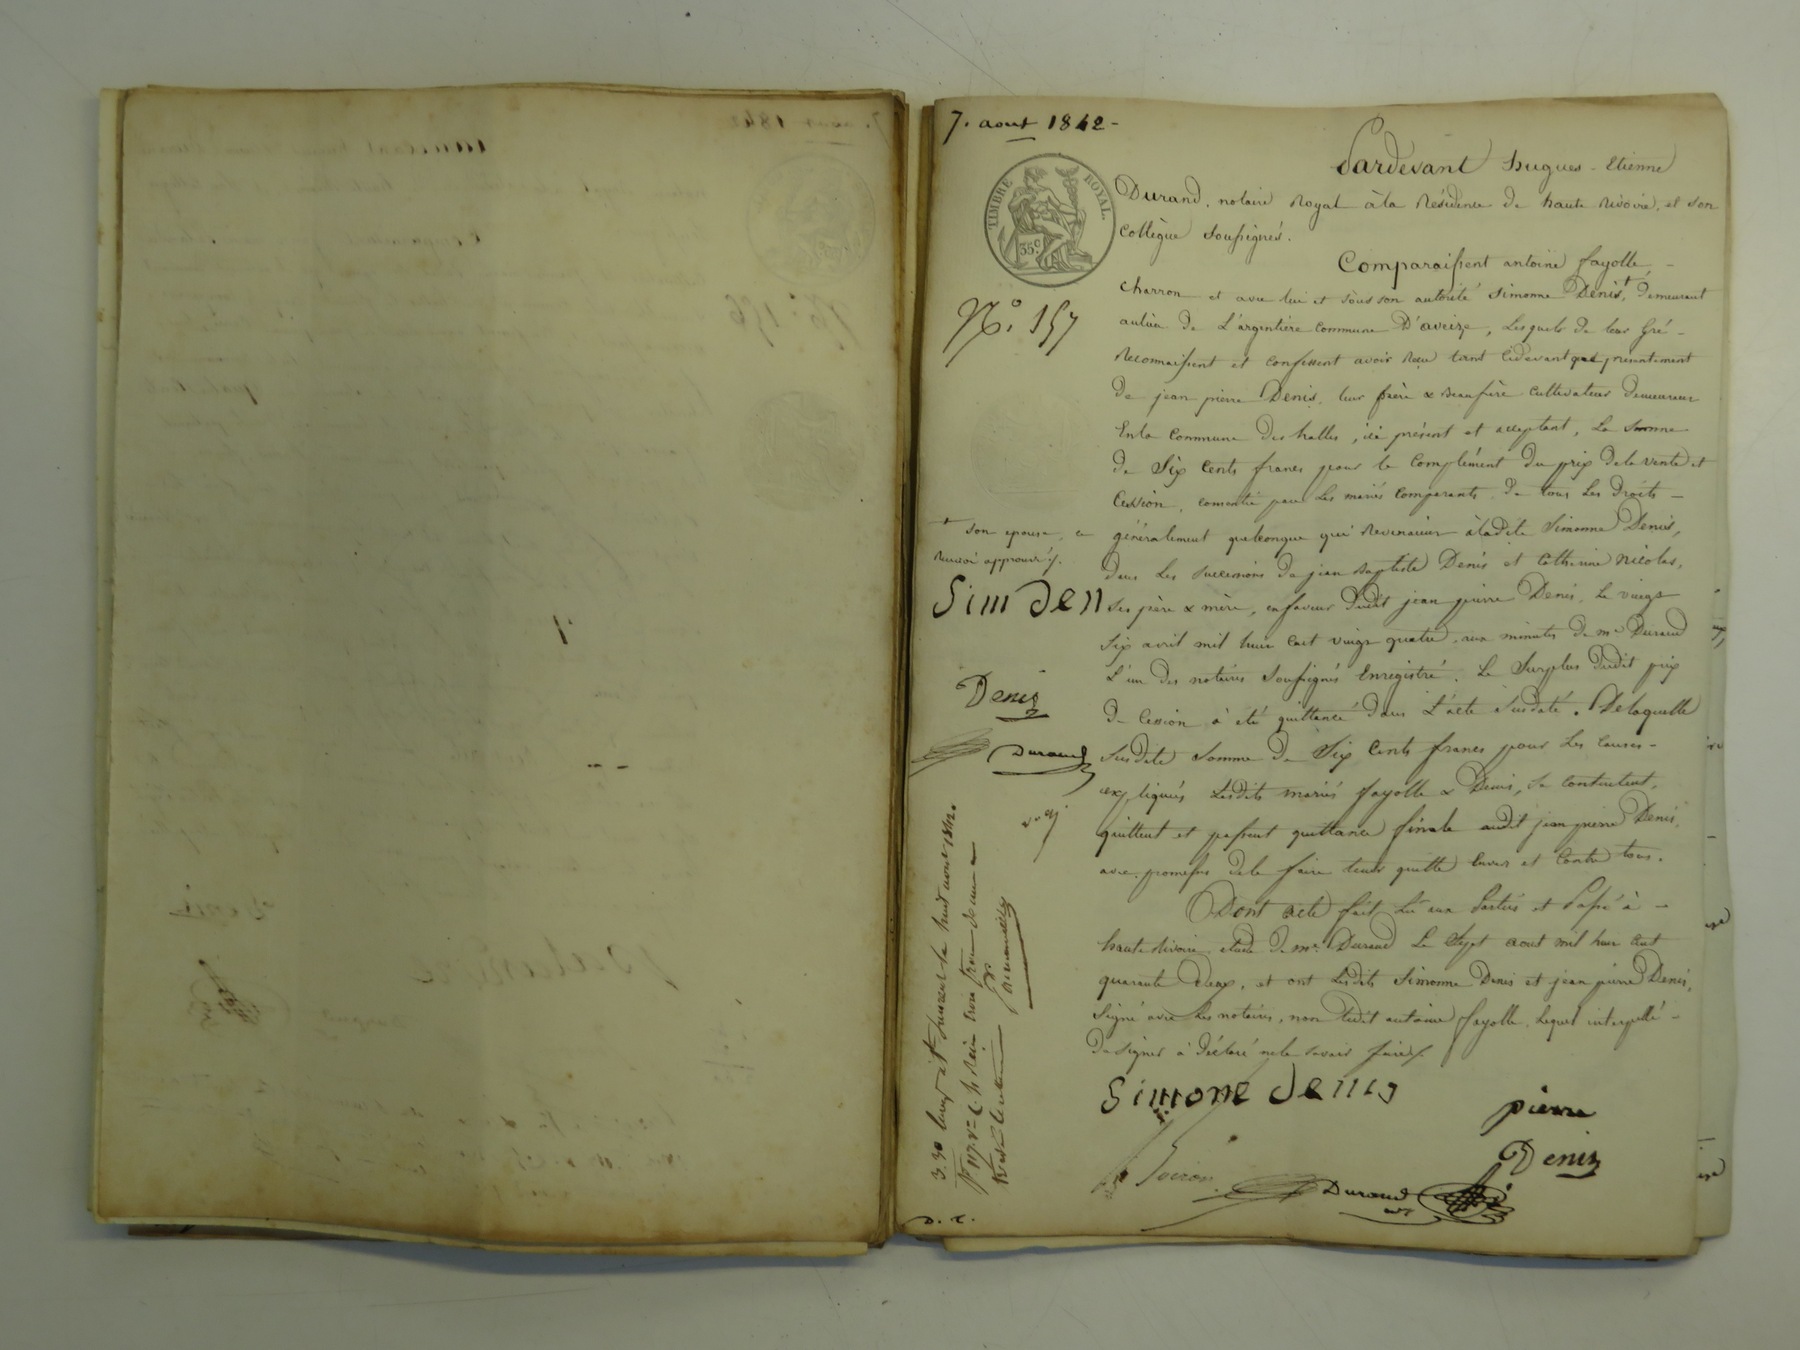 7. aout 1842 -
Pardevant hugues - Etienne
Durand, notaire Royal à la Résidence de haute Rivoire, et son
Collègue soussignés.
TIMBRE ROYAL.
35c.
N.° 157
Comparaissent antoine fayolle, -
charron et avec lui et sous son autorité simonne Denis +, demeurant
au lieu de L'argentière commune D'aveize, Lesquels de leur Gré -
Reconnaissent et confessent avoir Reçu tant cidevant que présentement
de jean pierre Denis, leur frère & Beaufrère cultivateur demeurant
En la Commune des halles, ici présent et acceptant, La somme
de Six Cents francs pour le Complément du prix de la vente et
Cession, consentie par Les mariés Comparants, de tous Les Droits -
généralement quelconque qui Revenaient à ladite Simonne Denis,
dans Les successions de jean Baptiste Denis et Catherine Nicolas,
ses père & mère, en faveur dudit jean pierre Denis, Le vingt
Six avril mil huit Cent vingt quatre, aux minutes de me Durand
L'un des notaires soussignés Enregistré. Le Surplus dudit prix
de Cession a été quittancé dans L'acte susdaté. De laquelle
susdite somme de Six Cents francs pour Les Causes -
expliquées Lesdits mariés fayolle & Denis, se contentent,
quittent et passent quittance finale audit jean pierre Denis,
avec promesse de le faire tenir quitte Envers et Contre tous.
Dont acte fait Lu aux Parties et Passé à -
haute Rivoire étude de me. Durand Le Sept aout mil huit cent
quarante Deux, et ont Lesdits Simonne Denis et jean pierre Denis,
Signé avec Les notaires, non Ledit antoine fayolle, Lequel interpellé -
De signer a Déclaré ne le savoir faire.
+ son epouse, ce
Renvoi approuvé.
Sim den
Denis
Durand
Simone denis
pierre
Denis
Durand
D. C.